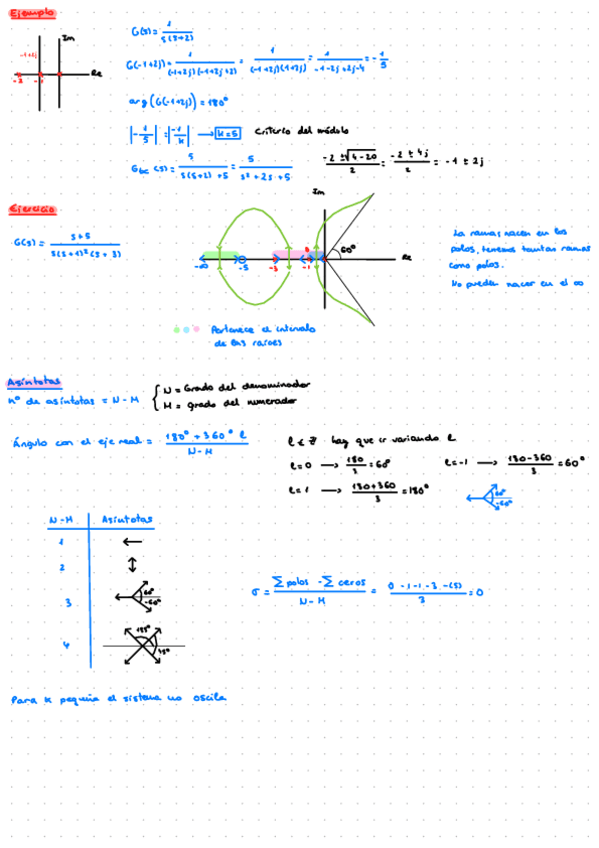 Ejemplo
G(s) = 1 / s(s+2)
Im
-1+2j
-2 -1 Re
G(-1+2j) = 1 / (-1+2j)(-1+2j+2) = 1 / (-1+2j)(1+2j) = 1 / -1-2j+2j-4 = -1/5
arg(G(-1+2j)) = 180°
|-1/5| = |-1/k| → k=5 Criterio del módulo
Gbc(s) = 5 / s(s+2)+5 = 5 / s²+2s+5
-2 ± √4-20 / 2 = -2 ± 4j / 2 = -1 ± 2j
Ejercicio
Im
G(s) = s+5 / s(s+1)²(s+3)
60°
-∞ -5 -3 -1 Re
La ramas nacen en los
polos, tenemos tantas ramas
como polos.
No pueden nacer en el ∞
Pertenece el intervalo
de las raíces
Asíntotas
nº de asíntotas = N-M
N = Grado del denominador
M = grado del numerador
Ángulo con el eje real = 180° + 360° l / N-M
l ∈ Z hay que ir variando l
l=0 → 180/3 = 60°
l=-1 → 180-360/3 = 60°
l=1 → 180+360/3 = 180°
60°
-60°
N-M Asíntotas
1
2
3 60° -60°
4
σ = Σ polos - Σ ceros / N-M = 0-1-1-3-(5) / 3 = 0
Para k pequeña el sistema no oscila